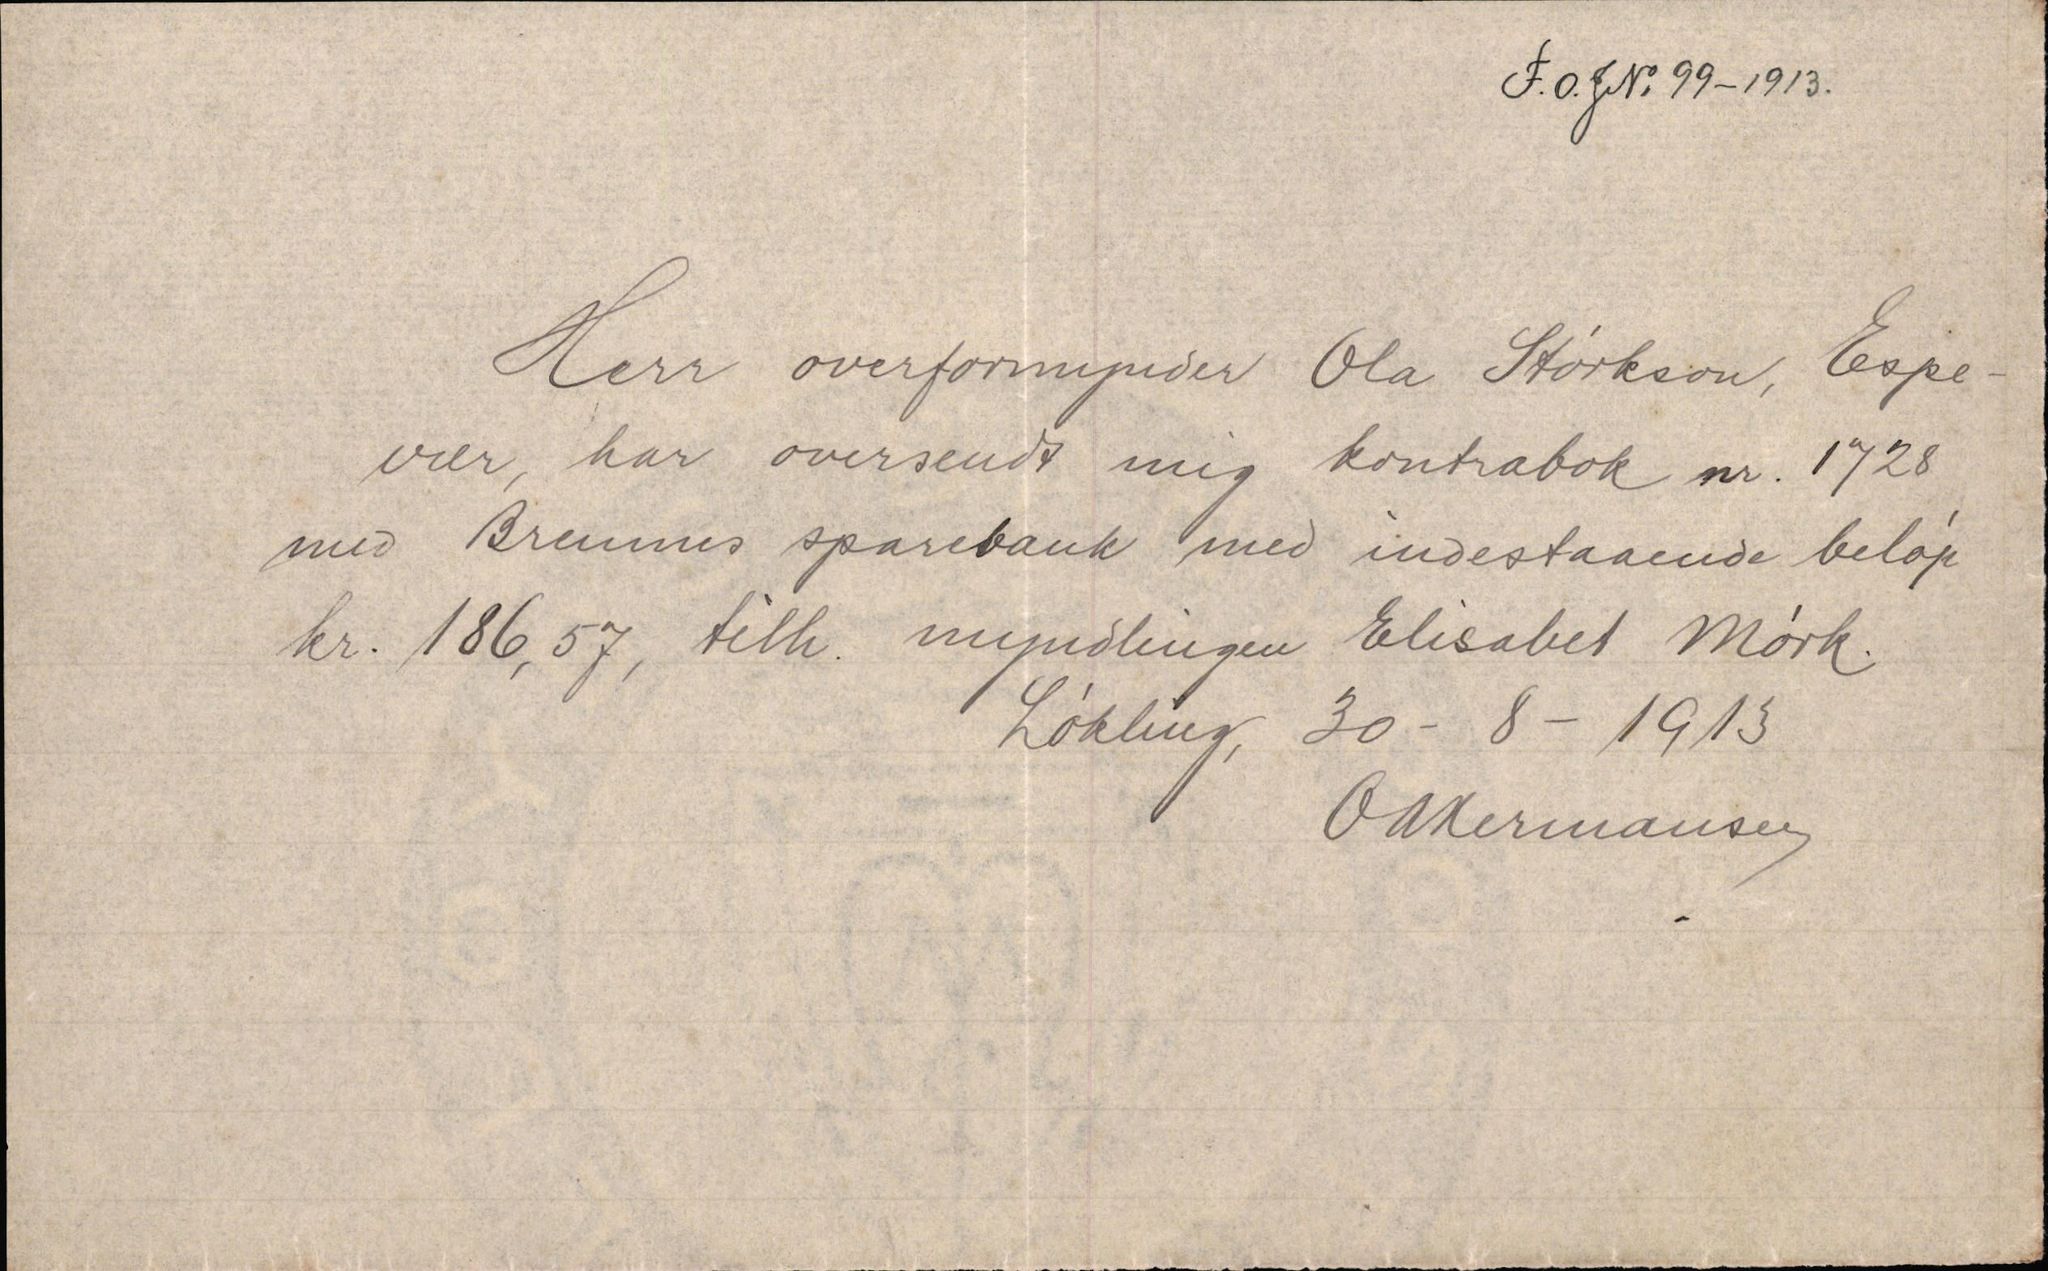 F.O.J.No. 99-1913.
Herr overformynder Ola Størkson, Espe-
vær, har oversendt mig kontrabok nr. 1728
med Bremnes sparebank med indestaaende beløp
kr. 186,57, tilh. myndlingen Elisabet Mørk.
Løkling, 30 - 8 - 1913
O A Hermansen